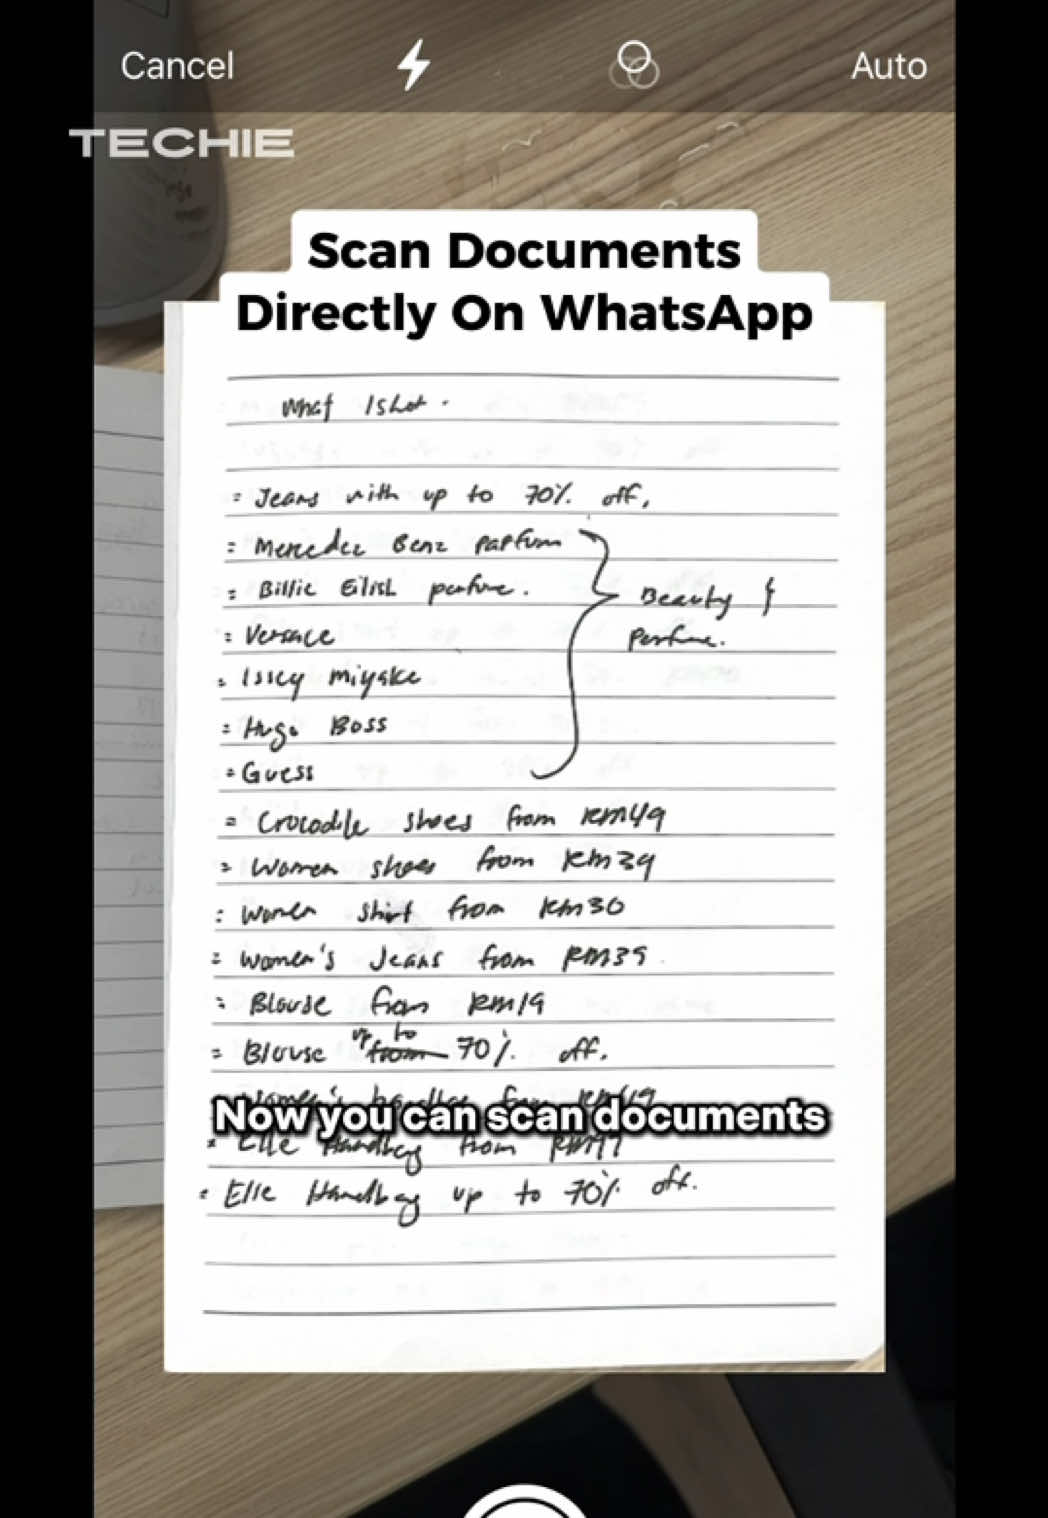 Cancel
Auto
TECHIE
Scan Documents
Directly On WhatsApp
What I shot.
= Jeans with up to 70% off,
= Mercedec Benz Parfum
= Billie Eilish perfume.
Beauty &
Perfume.
= Versace
= Issey miyake
= Hugo Boss
= Guess
= Crocodile shoes from RM49
= Women shoes from RM39
= Women shirt from RM30
= Women's Jeans from RM39
= Blouse from RM19
= Blouse up to from 70% off.
Women's handbag from
Now you can scan documents
= Elle Handbag from
= Elle Handbag up to 70% off.